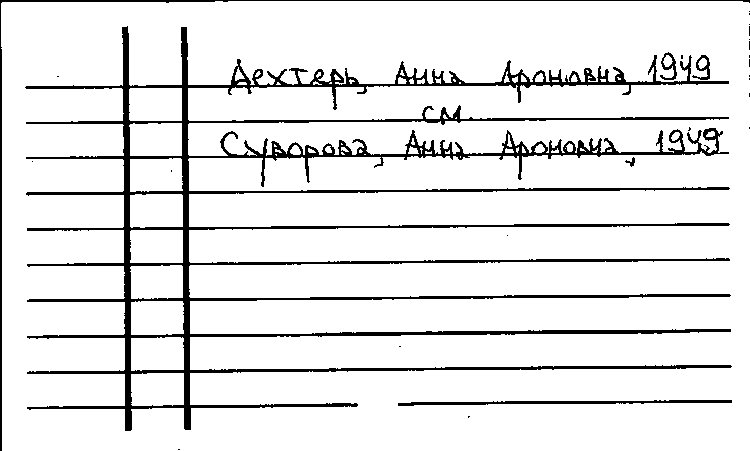 Дехтерь, Анна Ароновна, 1949
см.
Суворова, Анна Ароновна, 1949